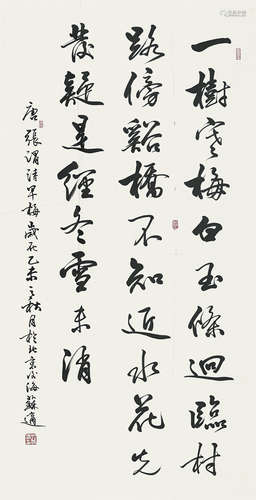 一樹寒梅白玉條迥臨村
路傍谿橋不知近水花先
發疑是經冬雪未消
唐張謂詩早梅歲在乙未之秋月於北京後海蘇適